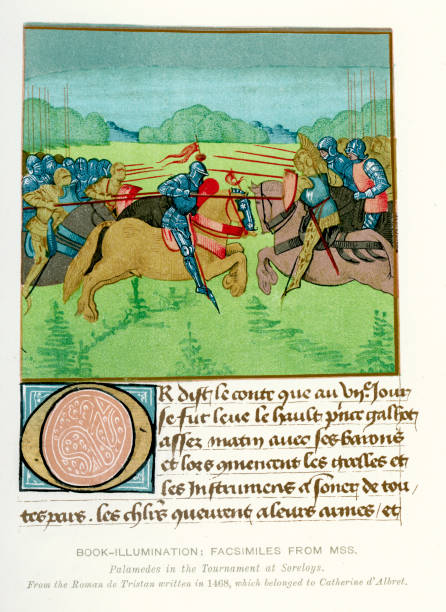 OR dist le conte que au Jour
se fut leue le hault pnce galhot
assez matin auec ses barons
et lors les et
les Instrumens a soner de tou
tes pars. les chlrs queurent a leurs armes, et
BOOK-ILLUMINATION; FACSIMILES FROM MSS.
Palamedes in the Tournament at Soreloys.
From the Roman de Tristan written in 1468, which belonged to Catherine d'Albret.